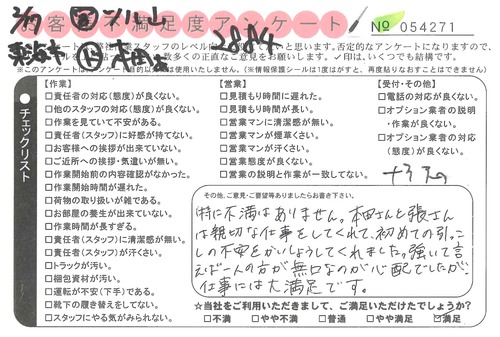 お客様不満足度アンケート No 054271
2/9
2884
※このアンケートはアンケート目的以外は使用いたしません。(※情報保護シールは1度はがすと、再度貼りなおすことはできません)
チェックリスト
【作業】
□責任者の対応(態度)が良くない。
□他のスタッフの対応(態度)が良くない。
□作業を見ていて不安がある。
□責任者(スタッフ)に好感が持てない。
□お客様への挨拶が出来ていない。
□ご近所への挨拶・気遣いが無い。
□作業開始前の内容確認がなかった。
□作業開始時間が遅れた。
□荷物の取り扱いが雑である。
□お部屋の養生が出来ていない。
□作業時間が長すぎる。
□責任者(スタッフ)に清潔感が無い。
□責任者(スタッフ)が汗くさい。
□トラックが汚い。
□梱包資材が汚い。
□運転が不安(下手)である。
□靴下の履き替えをしてない。
□スタッフにやる気がみられない。
【営業】
□見積もり時間に遅れた。
□見積もり時間が長い。
□営業マンに清潔感が無い。
□営業マンが煙草くさい。
□営業マンが汗くさい。
□営業態度が良くない。
□営業の説明と作業が一致してない。
【受付・その他】
□電話の対応が良くない。
□オプション業者の説明
・作業が良くない。
□オプション業者の対応
(態度)が良くない。
その他、ご意見・ご要望等ありましたらお書き下さい。
特に不満はありません。本田さんと張さん
は親切な仕事をしてくれて、初めての引っこ
しの不安をかいしょうしてくれました。強いて言
えば一人の方が無口なのが心配でしたが、
仕事には大満足です。
☆当社をご利用いただきまして、ご満足いただけたでしょうか?
□不満 □やや不満 □普通 □やや満足 ☑満足